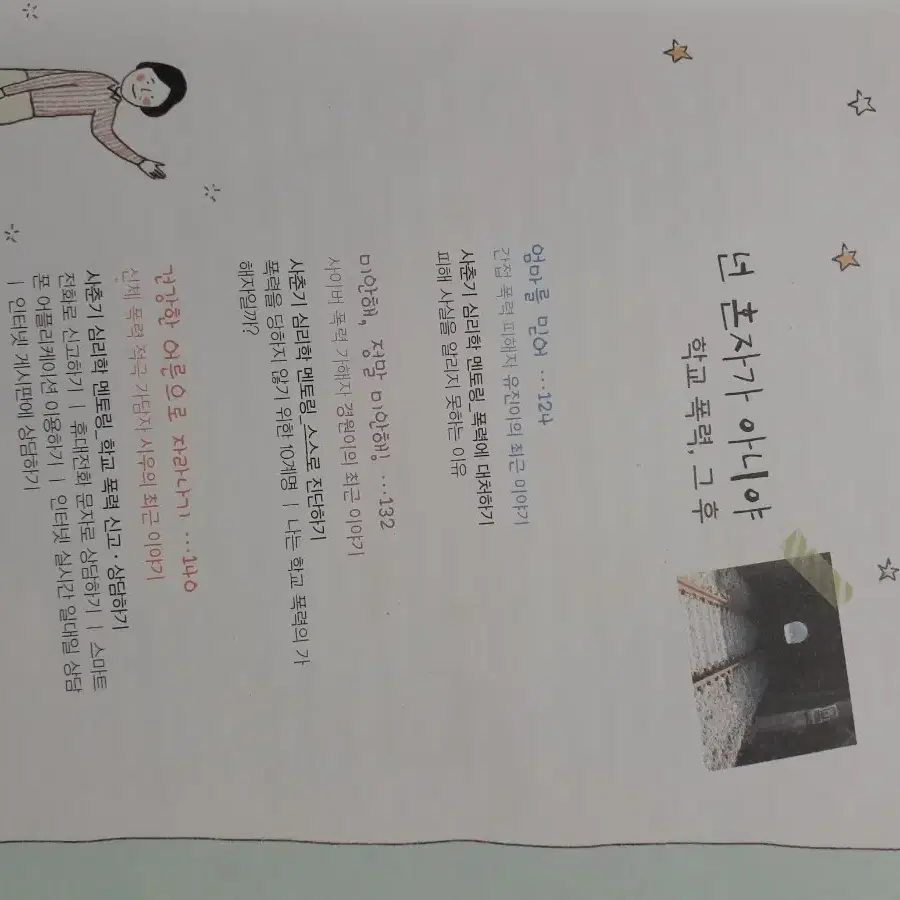 넌 혼자가 아니야
학교 폭력, 그 후
엄마를 믿어 …124
간접 폭력 피해자 유진이의 최근 이야기
사춘기 심리학 멘토링_폭력에 대처하기
피해 사실을 알리지 못하는 이유
미안해, 정말 미안해! …132
사이버 폭력 가해자 경원이의 최근 이야기
사춘기 심리학 멘토링_스스로 진단하기
폭력을 당하지 않기 위한 10계명 | 나는 학교 폭력의 가
해자일까?
건강한 어른으로 자라나기 …140
신체 폭력 적극 가담자 시우의 최근 이야기
사춘기 심리학 멘토링_학교 폭력 신고·상담하기
전화로 신고하기 | 휴대전화 문자로 상담하기 | 스마트
폰 어플리케이션 이용하기 | 인터넷 실시간 일대일 상담
| 인터넷 게시판에 상담하기